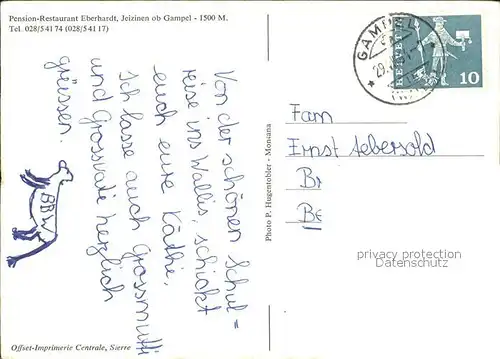 Pension-Restaurant Eberhardt, Jeizinen ob Gampel - 1500 M.
Tel. 028/5 41 74 (028/5 41 17)
Von der schönen Schul=
reise ins Wallis, schickt
euch eure Käthi.
Ich lasse auch Grossmutti
und Grossvati herzlich
grüssen.
BBW
Offset-Imprimerie Centrale, Sierre
Photo P. Hugentobler - Montana
GAMPEL
HELVETIA
10
Fam
Ernst Aebersold
B
Be
privacy protection
Datenschutz